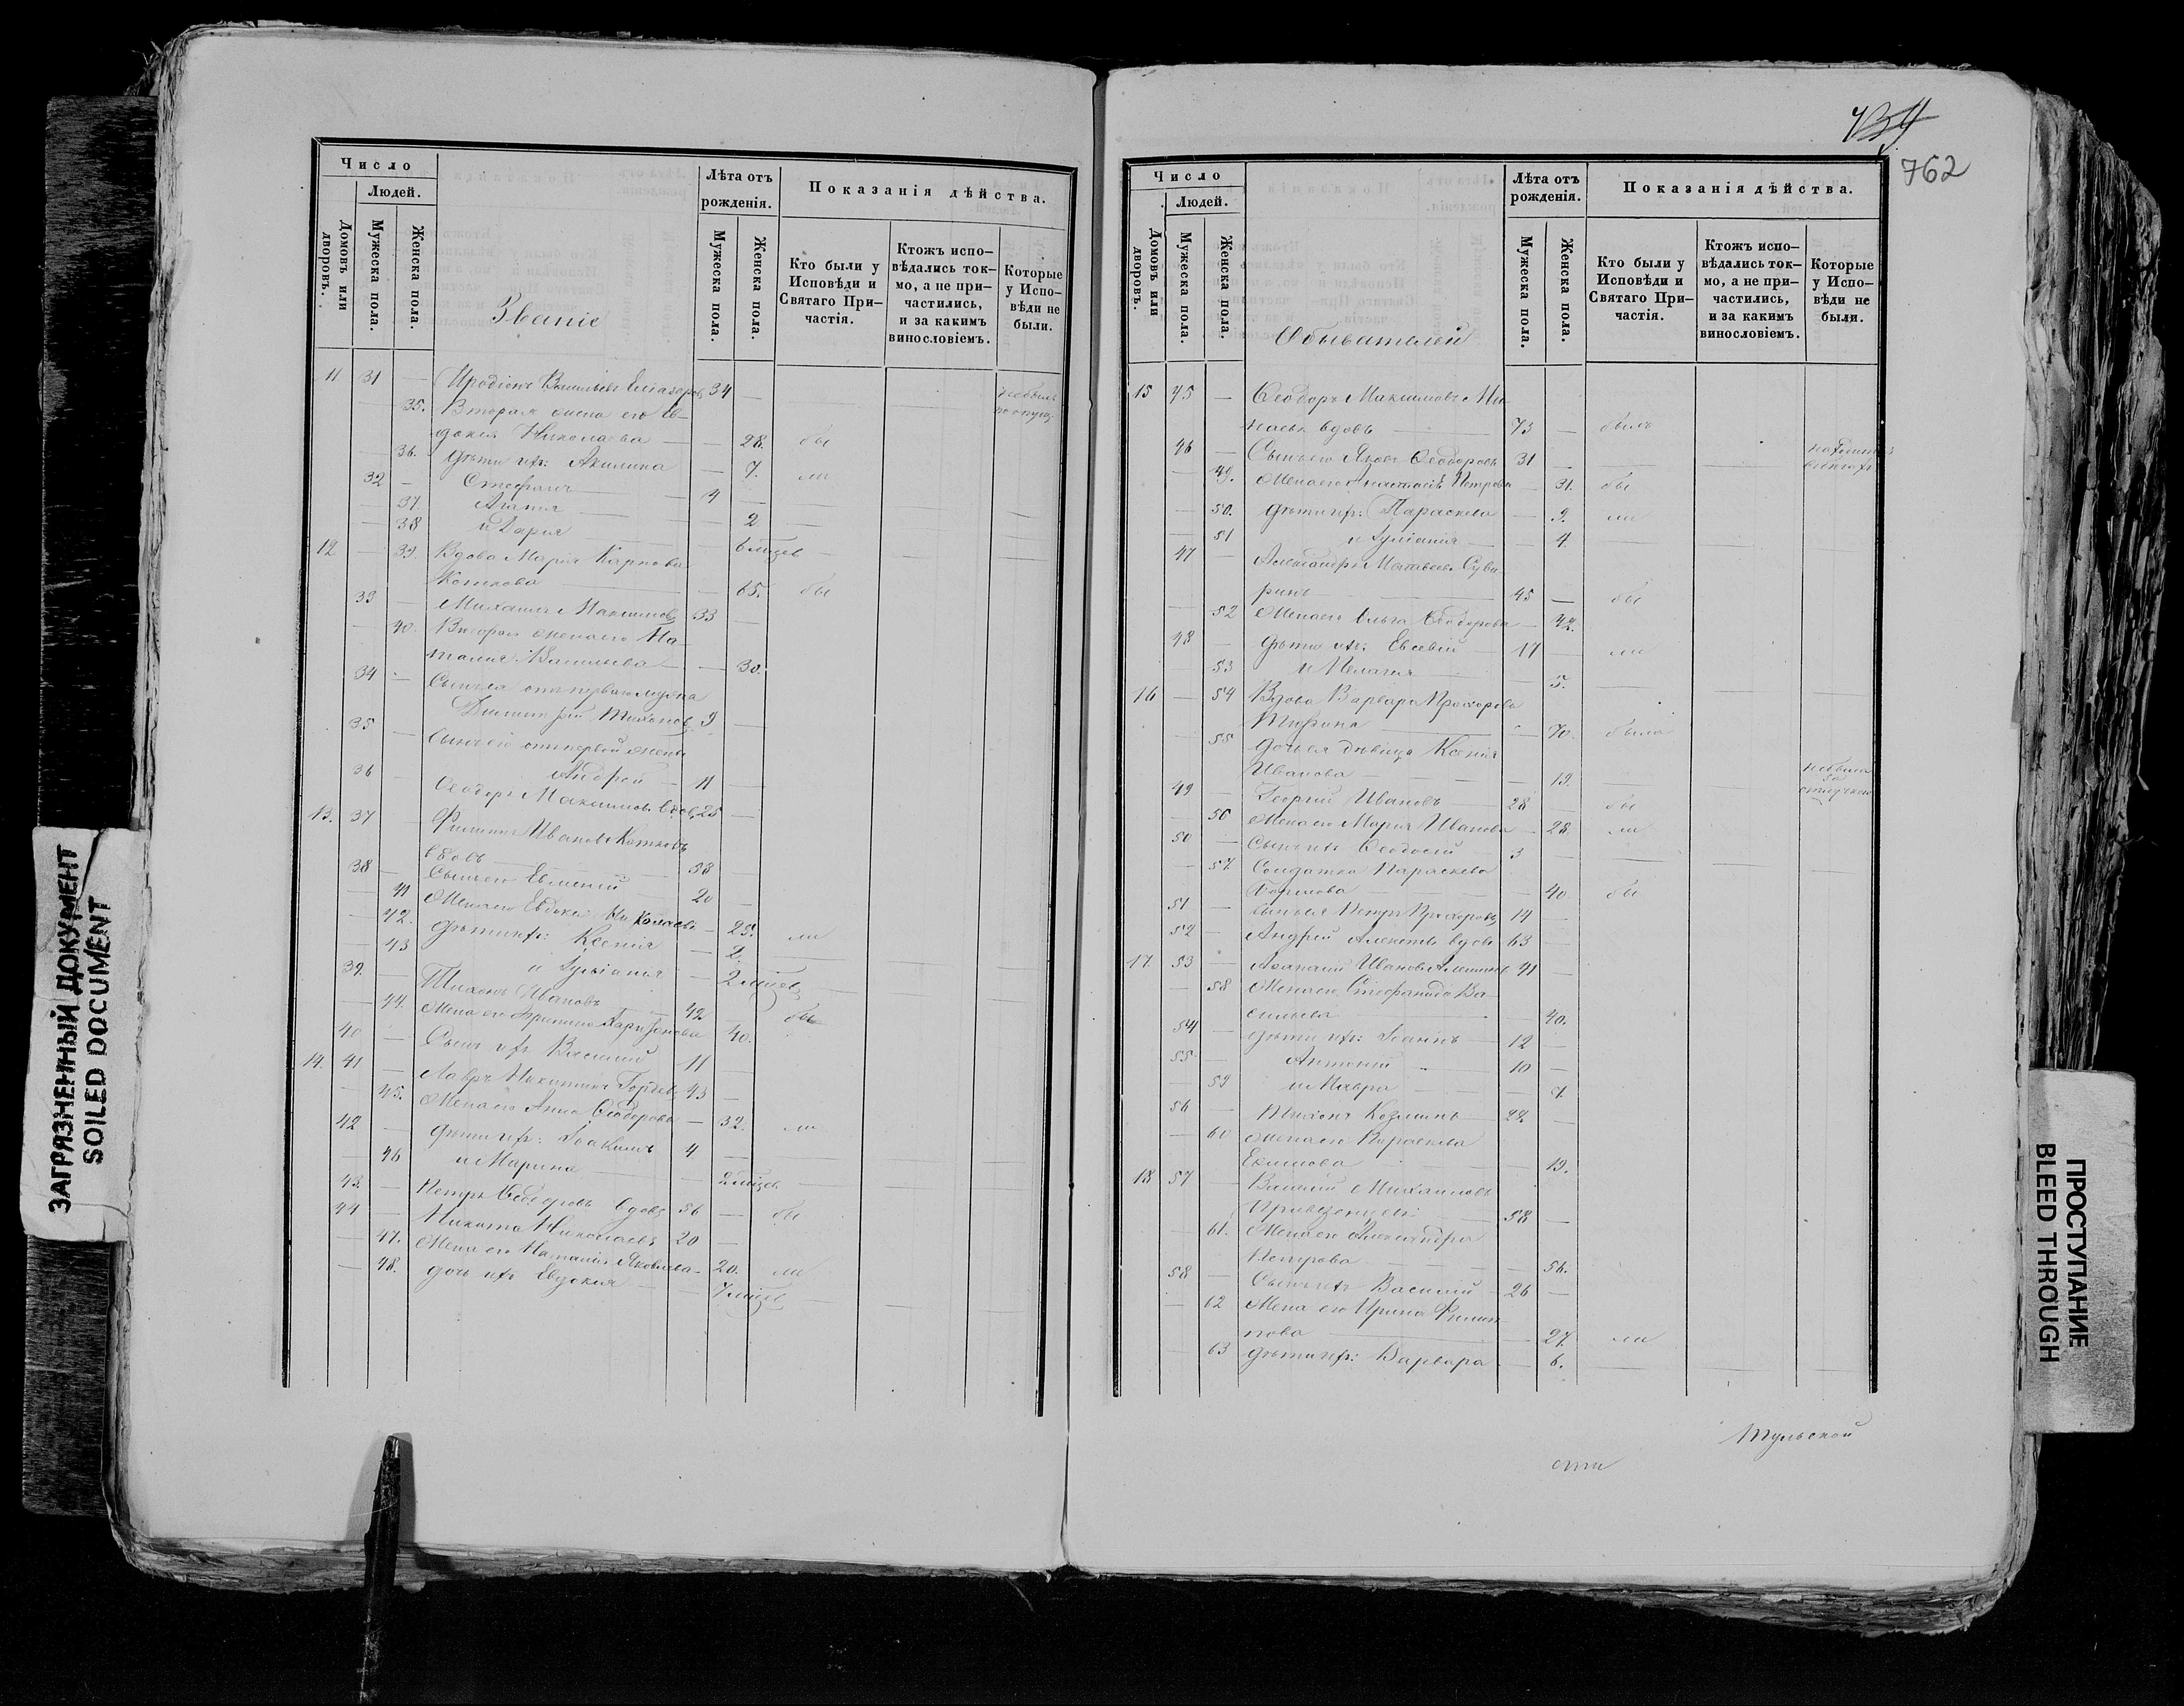 Число
Людей.
Домовъ или дворовъ.
Мужеска пола.
Женска пола.
Званіе
Лѣта отъ рожденія.
Мужеска пола.
Женска пола.
Показанія дѣйства.
Кто были у Исповѣди и Святаго Причастія.
Ктожъ испо-
вѣдались ток-
мо, а не при-
частились,
и за какимъ
винословіемъ.
Которые
у Испо-
вѣди не
были.
11 31 — Иродіонъ Васильевъ 34 —
35. Вторая жена его Ев-
докія Николаева — 28. бы
36. дѣти ихъ: Акилина — 7. ли
32 — Стефанъ 4 —
37. Агапія — 2
38 и Дарія 6 мѣсев
12 — 39. Вдова Марія Карпова
Коткова — 65. бы
33 — Михаилъ Максимовъ 33 —
40. Вторая жена его На-
талія Васильева — 30.
34 — Сынъ ея отъ перваго мужа
Димитрій Тихоновъ 9 —
35 — Сынъ его отъ первой жены
Андрей — 11 —
36 — Ѳеодоръ Максимовъ вдов. 25 —
13. 37 — Филиппъ Ивановъ Котковъ
вдовъ 58
38 — Сынъ его Евмений 20 —
41 Жена его Евдокія Николаева — 25. ли
42. дѣти ихъ: Ксенія — 2.
43 и Іуліанія — 2 мѣсев
39. — Тихонъ Ивановъ 42 — бы
44. Жена его — 40.
40 — Сынъ ихъ Василий 11
14. 41 — Лавръ Никитинъ 43 —
45. Жена его Анна Ѳеодорова — 32. ли
42 — дѣти ихъ: Іоакимъ 4 —
46 и Марина 2 мѣсев
43. — Петръ Ѳеодоровъ вдовъ 56 — бы
44 — Никита Николаевъ 20 —
47. Жена его Наталія Яковлева — 20. ли
48. дочь ихъ Евдокія — 7 мѣсев
762
Число
Людей.
Домовъ или дворовъ.
Мужеска пола.
Женска пола.
Обывателей
Лѣта отъ рожденія.
Мужеска пола.
Женска пола.
Показанія дѣйства.
Кто были у Исповѣди и Святаго Причастія.
Ктожъ испо-
вѣдались ток-
мо, а не при-
частились,
и за какимъ
винословіемъ.
Которые
у Испо-
вѣди не
были.
15 45 — Ѳеодоръ Максимовъ Ми-
наевъ вдовъ 73 — былъ
46 — Сынъ его Яковъ Ѳеодоровъ 31 —
49. Жена его Анастасія Петрова — 31. бы
50. дѣти ихъ: Параскева — 9. ли
51 и Іуліанія — 4.
47 — Александръ Матвеевъ Суво
ринъ 45 — бы
52 Жена его Ольга Ѳеодорова — 42.
48 — дѣти ихъ: Евсевій 17 — ли
53 и Пелагія — 5.
16 — 54 Вдова Варвара Прохорова
Тюрина — 70. была
55 дочь ея дѣвица Ксенія
Иванова — 19. небыла
49 — Георгій Ивановъ 28 — бы
56 Жена его Марія Иванова — 28. ли
50 — Сынъ ихъ Ѳеодосій 3 —
57 Солдатка Параскева
— 40. бы
51 — Сынъ ея Петръ Прохоровъ 14 —
52 — Андрей вдовъ 63 —
17. 53 — Ивановъ 41 —
58 Жена его Стефанида Ва-
сильева 40.
54 — дѣти ихъ: Іоаннъ — 12 —
55 — Антоній 10 —
59 и Мавра —
56 — Тихонъ Козминъ 22 —
60 Жена его Параскева
Екимова — 19.
18 57 — Василій Михаиловъ
58 —
61. Жена его Александра
Петрова — 56.
58 — Сынъ ихъ Василій 26 —
62 Жена его Ирина Филип
пова — 27. ли
63 дѣти ихъ: Варвара — 6.
Тульской
ЗАГРЯЗНЕННЫЙ ДОКУМЕНТ
SOILED DOCUMENT
ПРОСТУПАНИЕ
BLEED THROUGH